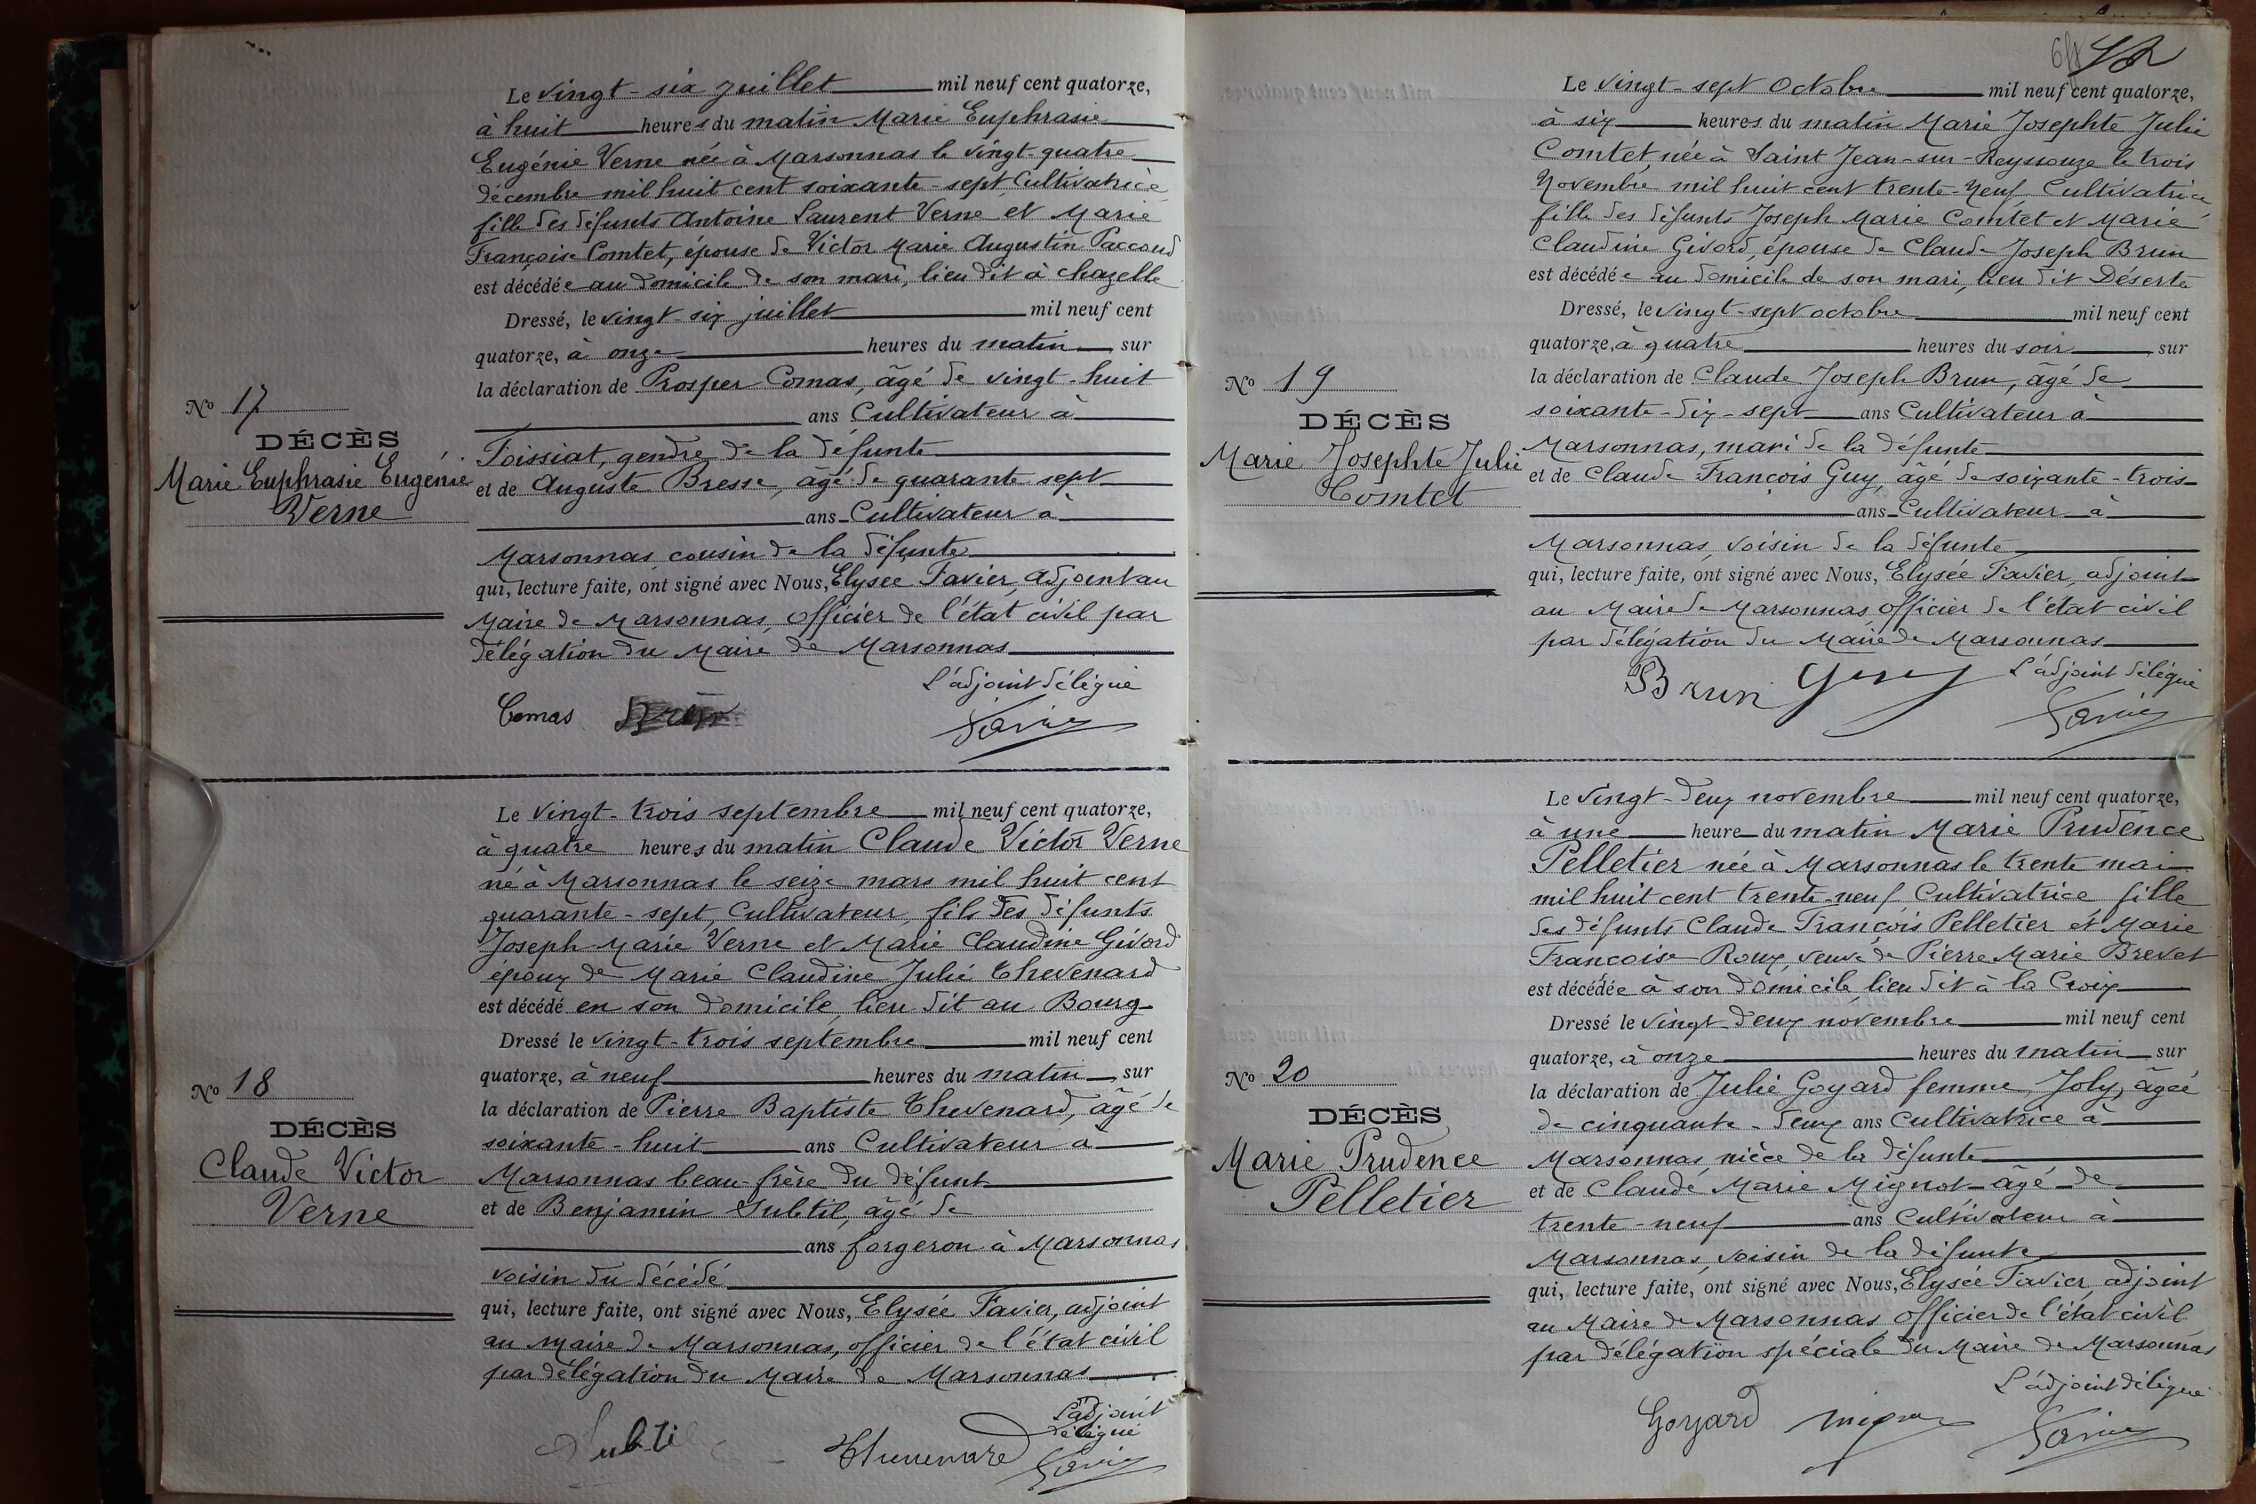 Le vingt-six juillet mil neuf cent quatorze,
à huit heures du matin Marie Euphrasie
Eugénie Verne née à Marsonnas le vingt-quatre
décembre mil huit cent soixante-sept, Cultivatrice
fille des défunts Antoine Laurent Verne et Marie
Françoise Comtet, épouse de Victor Marie Augustin Paccoud
est décédée au domicile de son mari, lieu dit à Chazelle
Dressé, le vingt-six juillet mil neuf cent
quatorze, à onze heures du matin sur
la déclaration de Prosper Comas, âgé de vingt-huit
ans Cultivateur à
Foissiat, gendre de la défunte
et de Auguste Bresse, âgé de quarante sept
ans Cultivateur à
Marsonnas, cousin de la défunte
qui, lecture faite, ont signé avec Nous, Elysée Favier, adjoint au
Maire de Marsonnas, officier de l'état civil par
délégation du Maire de Marsonnas
L'adjoint délégué
Comas
Favier
No 17
DÉCÈS
Marie Euphrasie Eugénie
Verne
Le vingt-trois septembre mil neuf cent quatorze,
à quatre heures du matin Claude Victor Verne
né à Marsonnas le seize mars mil huit cent
quarante-sept, Cultivateur, fils des défunts
Joseph Marie Verne et Marie Claudine Givord
époux de Marie Claudine Julie Thevenard
est décédé en son domicile, lieu dit au Bourg
Dressé le vingt-trois septembre mil neuf cent
quatorze, à neuf heures du matin, sur
la déclaration de Pierre Baptiste Thevenard, âgé de
soixante-huit ans Cultivateur à
Marsonnas beau-frère du défunt
et de Benjamin Subtil, âgé de
ans forgeron à Marsonnas
voisin du décédé
qui, lecture faite, ont signé avec Nous, Elysée Favier, adjoint
au Maire de Marsonnas, officier de l'état civil
par délégation du Maire de Marsonnas
L'adjoint
délégué
Subtil Thevenard Favier
No 18
DÉCÈS
Claude Victor
Verne
Le vingt-sept Octobre mil neuf cent quatorze,
à six heures du matin Marie Josephte Julie
Comtet née à Saint Jean-sur-Reyssouze le trois
Novembre mil huit cent trente-neuf Cultivatrice
fille des défunts Joseph Marie Comtet et Marie
Claudine Givord, épouse de Claude Joseph Brun
est décédée au domicile de son mari, lieu dit Déserte
Dressé, le vingt-sept octobre mil neuf cent
quatorze, à quatre heures du soir, sur
la déclaration de Claude Joseph Brun, âgé de
soixante-dix-sept ans Cultivateur à
Marsonnas, mari de la défunte
et de Claude François Guy, âgé de soixante-trois
ans Cultivateur à
Marsonnas, voisin de la défunte
qui, lecture faite, ont signé avec Nous, Elysée Favier, adjoint
au Maire de Marsonnas, officier de l'état civil
par délégation du Maire de Marsonnas
Brun Guy L'adjoint délégué
Favier
No 19
DÉCÈS
Marie Josephte Julie
Comtet
Le vingt-deux novembre mil neuf cent quatorze,
à une heure du matin Marie Prudence
Pelletier née à Marsonnas le trente mai
mil huit cent trente-neuf Cultivatrice fille
des défunts Claude François Pelletier et Marie
Francoise Roux, veuve de Pierre Marie Brevet
est décédée à son domicile, lieu dit à la Croix
Dressé le vingt-deux novembre mil neuf cent
quatorze, à onze heures du matin sur
la déclaration de Julie Goyard femme Joly, âgée
de cinquante-deux ans Cultivatrice à
Marsonnas, nièce de la défunte
et de Claude Marie Mignot âgé de
trente-neuf ans Cultivateur à
Marsonnas, voisin de la défunte
qui, lecture faite, ont signé avec Nous, Elysée Favier, adjoint
au Maire de Marsonnas, officier de l'état civil
par délégation spéciale du Maire de Marsonnas
L'adjoint délégué
Goyard Mignot Favier
No 20
DÉCÈS
Marie Prudence
Pelletier